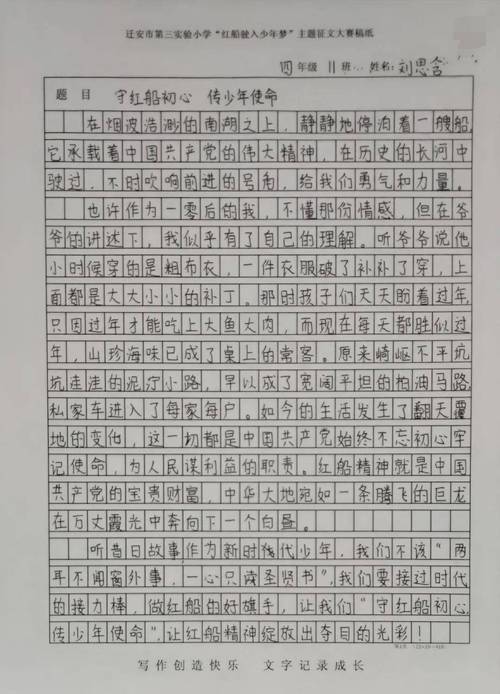 迁安市第三实验小学“红船驶入少年梦”主题征文大赛稿纸
四年级 11班 姓名：刘思含
题目 守红船初心 传少年使命
在烟波浩渺的南湖之上，静静地停泊着一艘船，
它承载着中国共产党的伟大精神，在历史的长河中
驶过，不时吹响前进的号角，给我们勇气和力量。
也许作为一零后的我，不懂那份情感，但在爷
爷的讲述下，我似乎有了自己的理解。听爷爷说他
小时候穿的是粗布衣，一件衣服破了补补了穿，上
面都是大大小小的补丁。那时孩子们天天盼着过年，
只因过年才能吃上大鱼大肉，而现在每天都胜似过
年，山珍海味已成了桌上的常客。原来崎岖不平坑
坑洼洼的泥泞小路，早以成了宽阔平坦的柏油马路，
私家车进入了每家每户。如今的生活发生了翻天覆
地的变化，这一切都是中国共产党始终不忘初心牢
记使命，为人民谋利益的职责。红船精神就是中国
共产党的宝贵财富，中华大地宛如一条腾飞的巨龙
在万丈霞光中奔向下一个白昼。
听昔日故事作为新时代少年，我们不该“两
耳不闻窗外事，一心只读圣贤书”，我们要接过时代
的接力棒，做红船的好旗手，让我们“守红船初心，
传少年使命”，让红船精神绽放出夺目的光彩！
写作创造快乐 文字记录成长